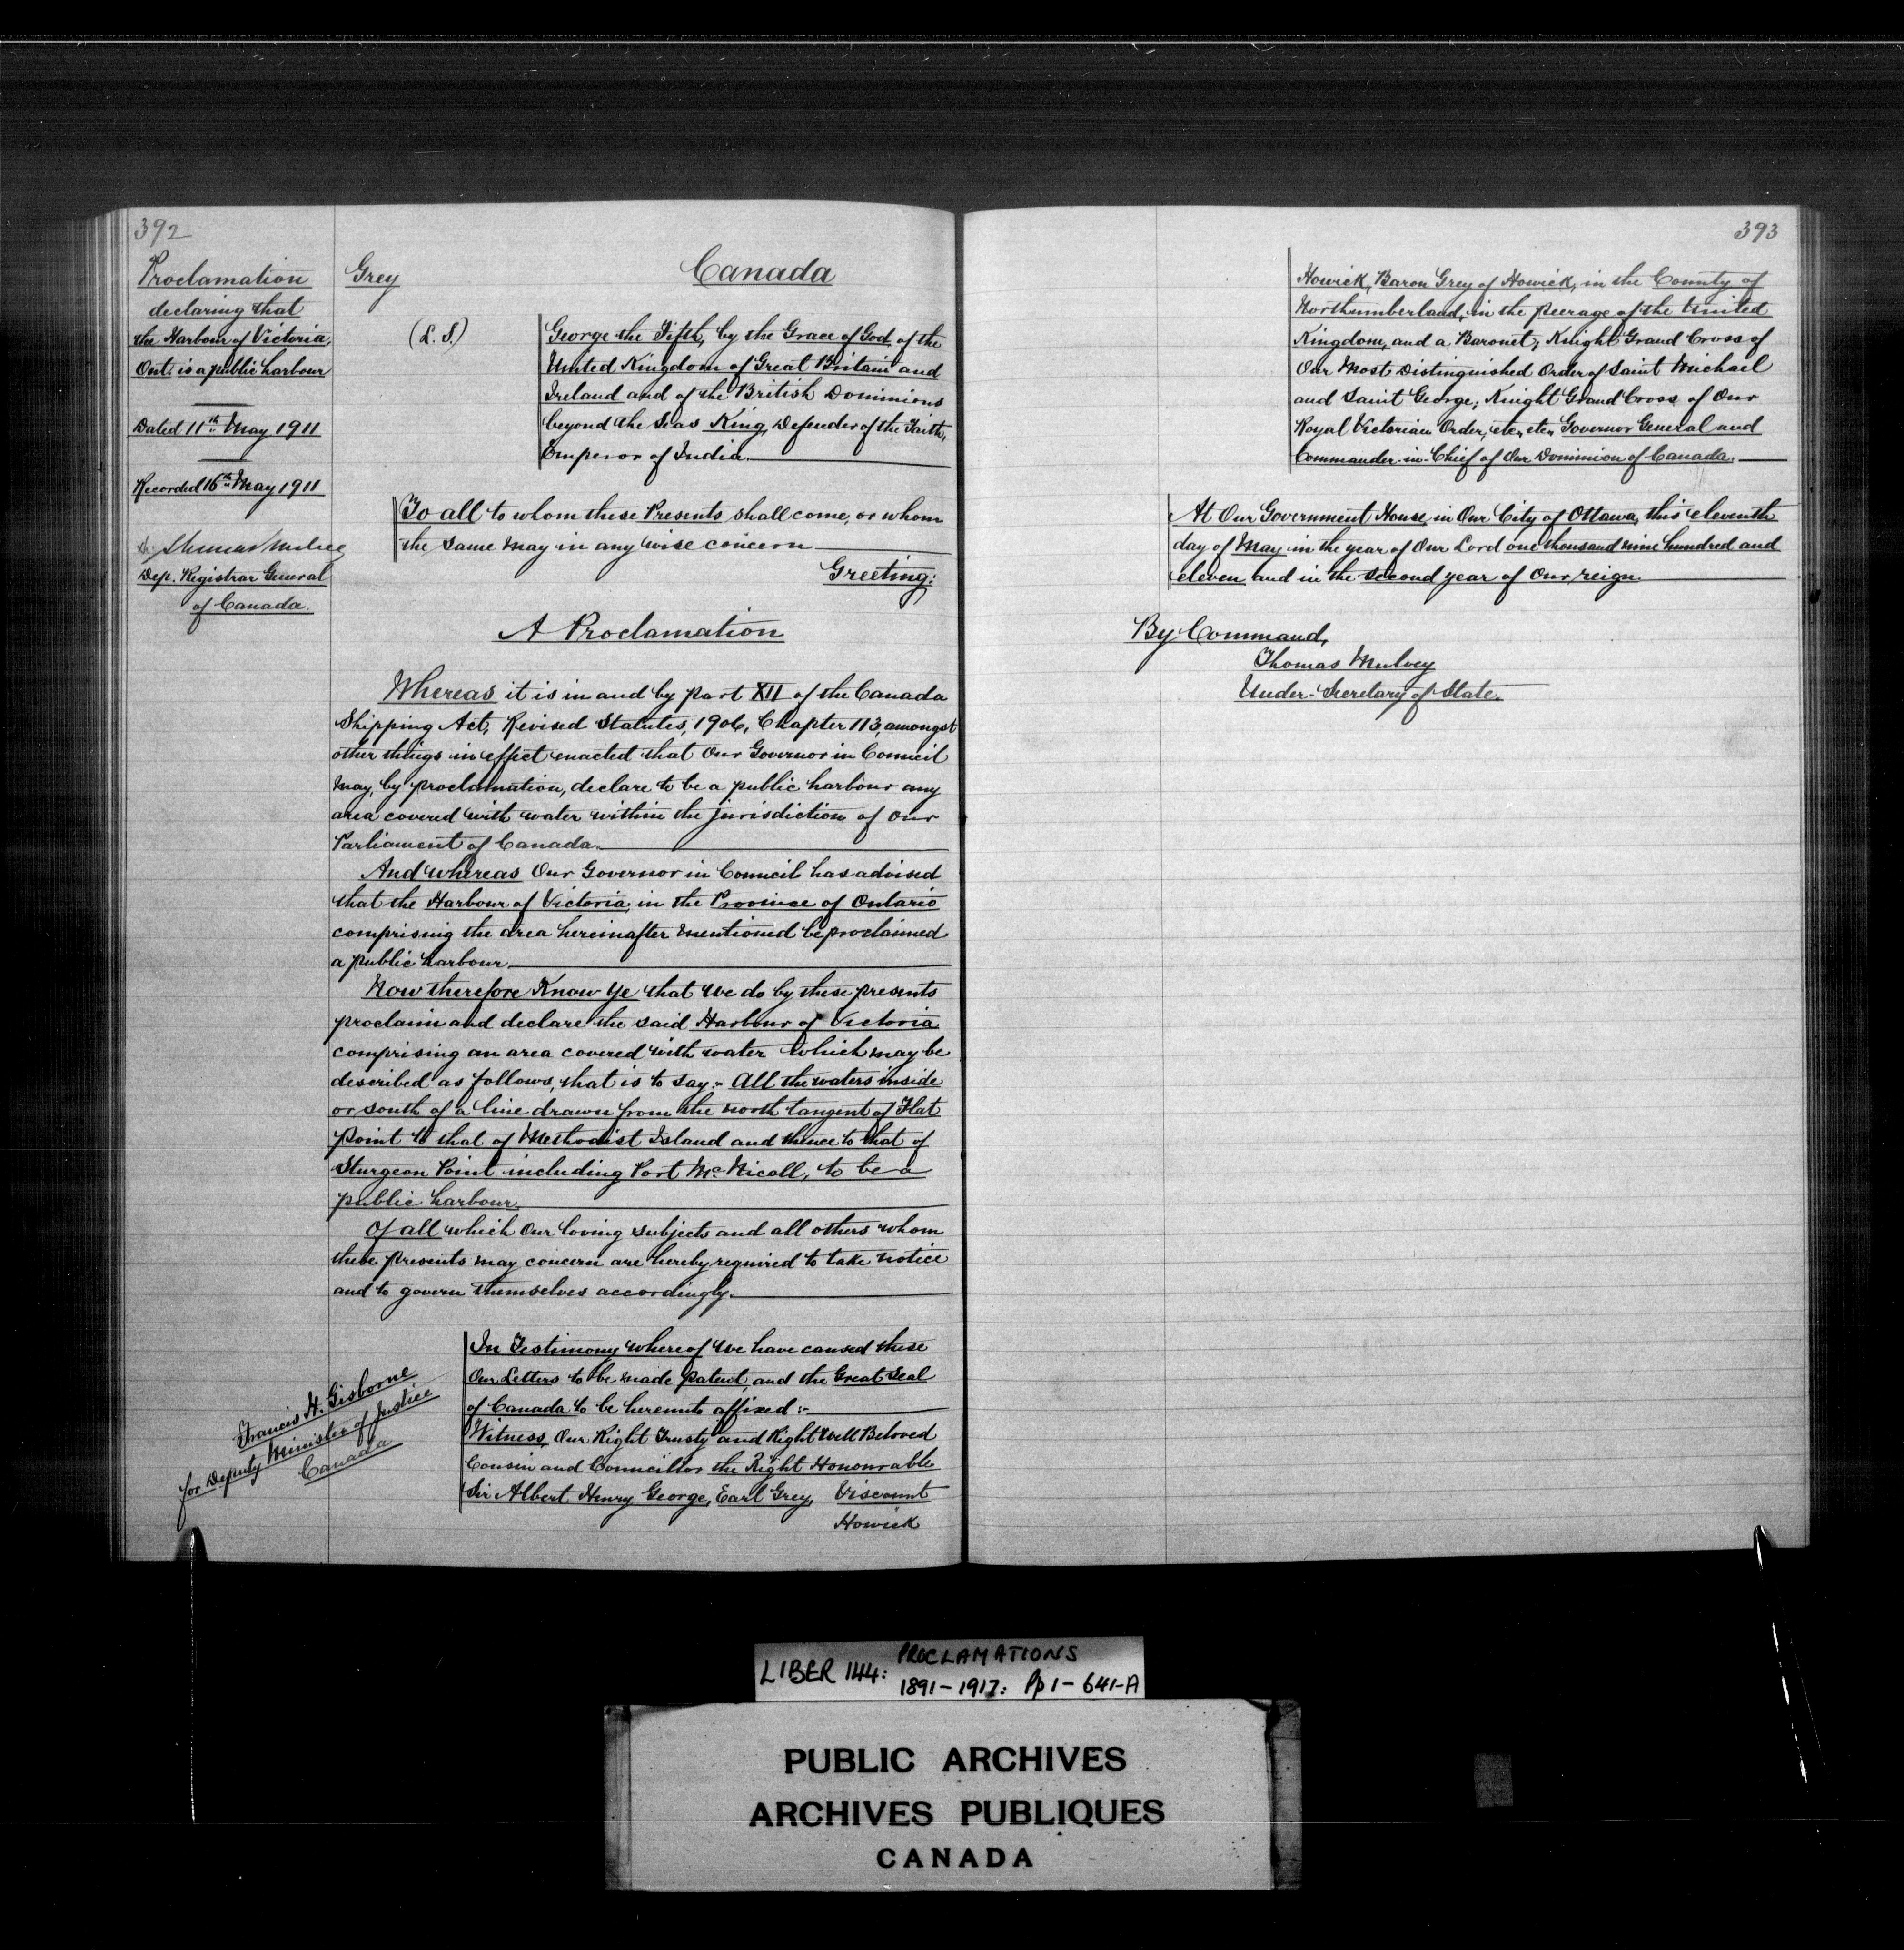 392
Proclamation
declaring that
the Harbour of Victoria,
Ont: is a public harbour
Dated 11th May 1911
Recorded 16th May 1911
Thomas Mulvey
Dep. Registrar General
of Canada.
Grey
Canada
(L. S.)
George the Fifth, by the Grace of God, of the
United Kingdom of Great Britain and
Ireland and of the British Dominions
beyond the Seas King, Defender of the Faith,
Emperor of India.
To all to whom these Presents shall come, or whom
the same may in any wise concern
Greeting:
A Proclamation
Whereas it is in and by part XII of the Canada
Shipping Act, Revised Statutes, 1906, Chapter 113, amongst
other things in effect enacted that Our Governor in Council
may, by proclamation, declare to be a public harbour any
area covered with water within the jurisdiction of Our
Parliament of Canada.
And whereas Our Governor in Council has advised
that the Harbour of Victoria, in the Province of Ontario
comprising the area hereinafter mentioned be proclaimed
a public harbour.
Now therefore Know Ye that We do by these presents
proclaim and declare the said Harbour of Victoria
comprising an area covered with water which may be
described as follows, that is to say:- All the waters inside
or south of a line drawn from the north tangent of Flat
Point to that of Methodist Island and thence to that of
Sturgeon Point including Port McNicoll, to be a
public harbour.
Of all which Our loving subjects and all others whom
these presents may concern are hereby required to take notice
and to govern themselves accordingly.
In Testimony whereof We have caused these
Our Letters to be made patent, and the Great Seal
of Canada to be hereunto affixed:-
Witness, Our Right Trusty and Right Well Beloved
Cousin and Councillor the Right Honourable
Sir Albert Henry George, Earl Grey, Viscount
Howick
Francis H. Gisborne
for Deputy Minister of Justice
Canada
393
Howick, Baron Grey of Howick, in the County of
Northumberland, in the peerage of the United
Kingdom, and a Baronet; Knight Grand Cross of
Our Most Distinguished Order of Saint Michael
and Saint George; Knight Grand Cross of Our
Royal Victorian Order, etc, etc, Governor General and
Commander-in-Chief of Our Dominion of Canada.
At Our Government House, in Our City of Ottawa, this eleventh
day of May in the year of Our Lord one thousand nine hundred and
eleven and in the second year of Our reign.
By Command,
Thomas Mulvey
Under-Secretary of State.
LIBER 144: PROCLAMATIONS
1891-1917: Pp 1-641-A
PUBLIC ARCHIVES
ARCHIVES PUBLIQUES
CANADA